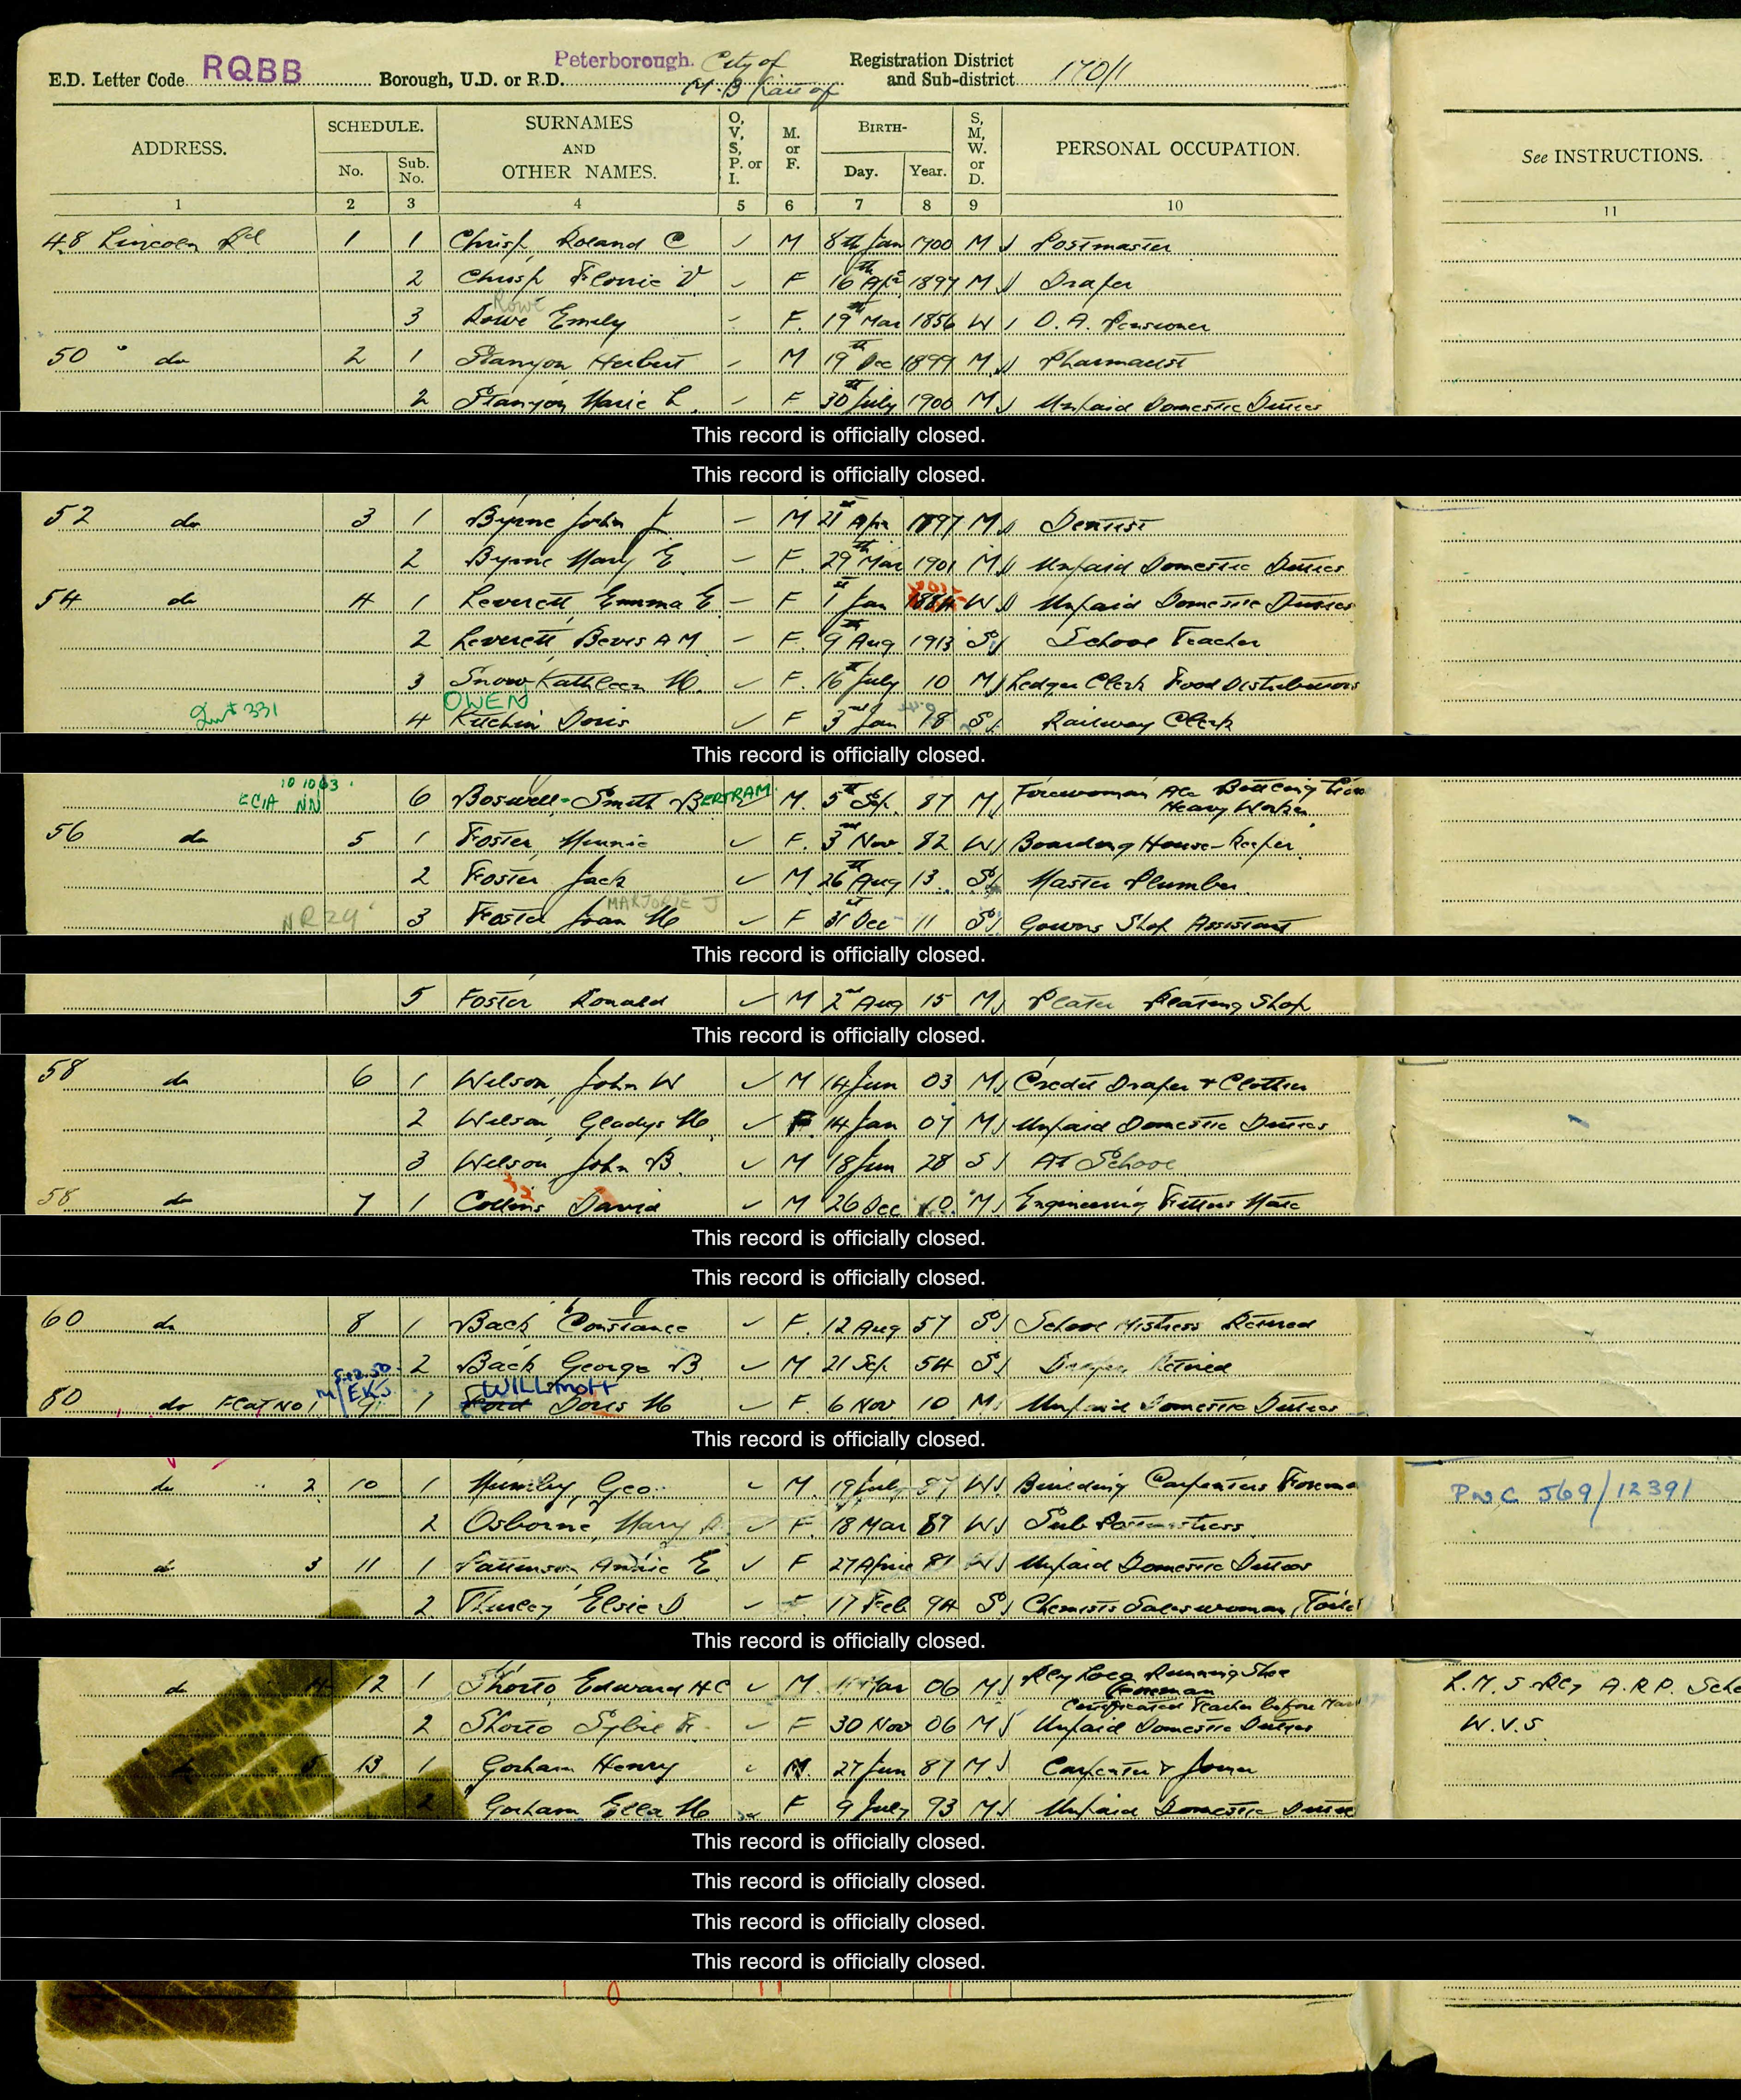 E.D. Letter Code RQBB Borough, U.D. or R.D. Peterborough. City of Registration District and Sub-district 170/1
M.B.
ADDRESS. SCHEDULE. SURNAMES AND OTHER NAMES. O, V, S, P. or I. M. or F. BIRTH- S, M, W. or D. PERSONAL OCCUPATION. See INSTRUCTIONS.
No. Sub. No. Day. Year.
1 2 3 4 5 6 7 8 9 10 11
48 Lincoln Rd 1 1 Chrisp, Roland C M 8th Jan 1900 M Postmaster
2 Chrisp Florrie V F 16th Apr 1897 M Draper
Rowe
3 Rowe Emily F. 19th Mar 1856 W O.A. Pensioner
50 " do 2 1 Stanyon, Herbert M 19th Dec 1899 M Pharmacist
2 Stanyon, Marie L. F. 30th July 1900 M Unpaid Domestic Duties
This record is officially closed.
This record is officially closed.
52 do 3 1 Byrne John J M 21st Apr 1897 M Dentist
2 Byrne Mary E. F. 29th Mar 1901 M Unpaid Domestic Duties
54 do 4 1 Leverett, Emma E F 1st Jan 1884 W Unpaid Domestic Duties
2 Leverett, Bevis A M F. 9th Aug 1913 S School Teacher
3 Snow Kathleen M. F. 16th July 10 M Ledger Clerk Food Distributors
OWEN
331 4 Kitchin Doris F 3rd Jan 18 S Railway Clerk
This record is officially closed.
10 10 63
ECIA NN 6 Boswell-Smith BERTRAM M. 5th Sep. 87 M Forewoman Ale Bottling
Heavy Worker
56 do 5 1 Foster, Minnie F. 3rd Nov 82 W Boarding House-Keeper
2 Foster Jack M. 26th Aug 13 S Master Plumber
MARJORIE J
NR29 3 Foster Joan M F 31st Dec 11 S Gowns Shop Assistant
This record is officially closed.
5 Foster Ronald M 2nd Aug 15 M Plater Plating Shop
This record is officially closed.
58 do 6 1 Wilson, John W M 14 Jun 03 M Credit Draper & Clothier
2 Wilson, Gladys M F. 14 Jan 07 M Unpaid Domestic Duties
3 Wilson, John B. M 18 Jun 28 S At School
58 do 7 1 Collins David M 26 Dec 10 M Engineering Fitters Mate
This record is officially closed.
This record is officially closed.
60 do 8 1 Back Constance F. 12 Aug 57 S School Mistress Retired
2 Back George B M 21 Sep. 54 S Draper Retired
5.12.50 EKS WILLMOTT
80 do Flat No 1 9 1 Ford Doris M F. 6 Nov 10 M Unpaid Domestic Duties
This record is officially closed.
do " 2 10 1 Geo. M. 19 July 87 W Building Carpenters Foreman PNC 569/12391
2 Osborne, Mary F. 18 Mar 89 W Sub Postmistress
do 3 11 1 Pattinson Annie E. F 27 April 81 W Unpaid Domestic Duties
2 Thurley Elsie D F. 17 Feb 94 S Chemists Saleswoman,
This record is officially closed.
do 4 12 1 Shorto, Edward H C M. 11 Mar 06 M Rly Loco Running Shed Foreman L.M.S. Rly A.R.P.
Certificated Teacher before
2 Shorto Sybil F. F 30 Nov 06 M Unpaid Domestic Duties W.V.S
5 13 1 Gorham Henry M. 27 Jun 87 M Carpenter & Joiner
2 Gorham Ella M F 9 July 93 M Unpaid Domestic Duties
This record is officially closed.
This record is officially closed.
This record is officially closed.
This record is officially closed.